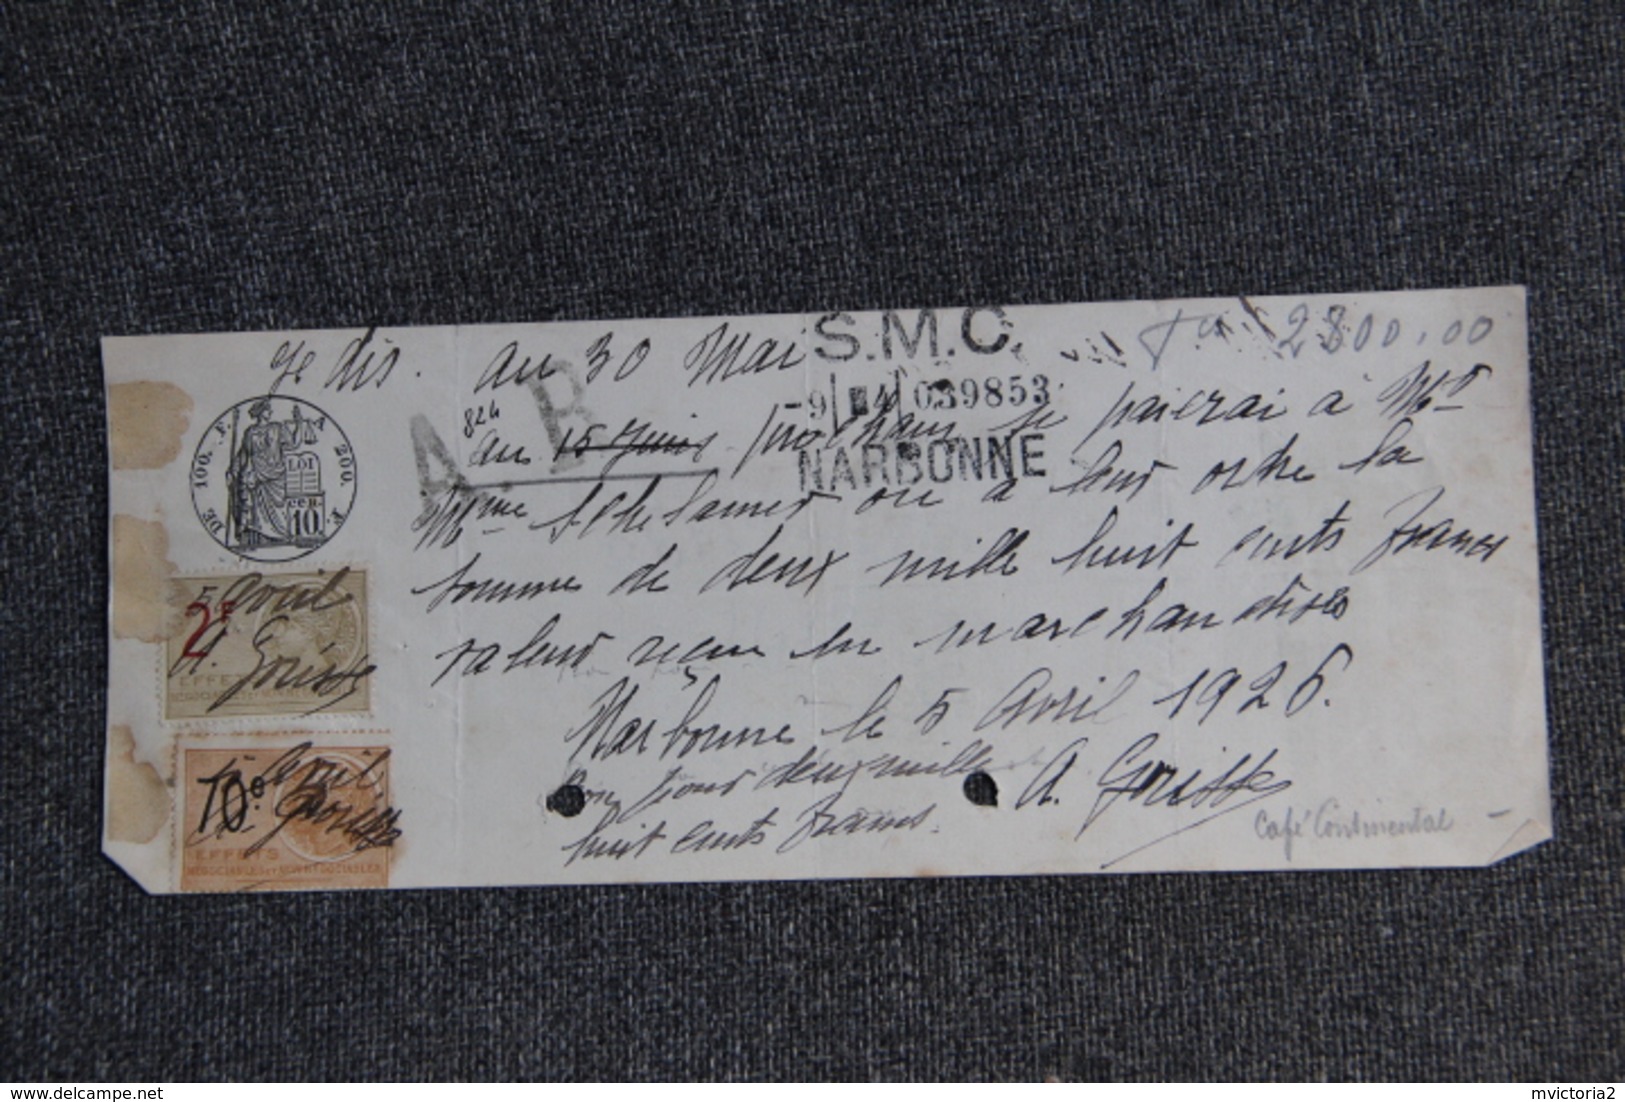 Je dis. au 30 Mai
S.M.C.
2800.00
824
A. B
-9 4 039853
NARBONNE
au 15 Juin prochain je paierai à Mr
Mme ou à leur ordre la
somme de deux mille huit cents francs
valeur reçue en marchandises
Narbonne le 5 Avril 1926.
Bon pour deux mille
huit cents francs.
A.
Café Continental
DE 100. F. A 200. F.
LOI
CER
10
5 avril
2F
A.
EFFETS
avril
70c
EFFETS
NEGOCIABLES ET NON NEGOCIABLES
delcampe.net
mvictoria2